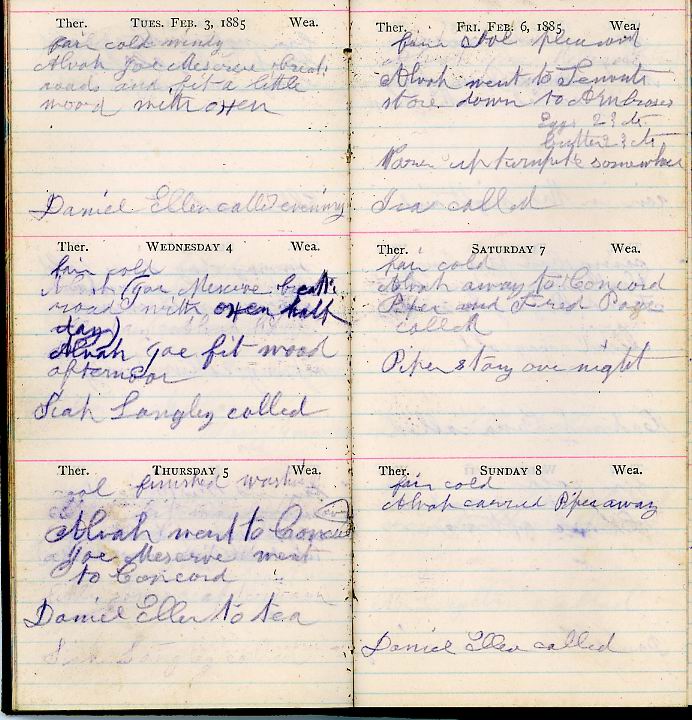 Ther. TUES. FEB. 3, 1885 Wea.
fair cold windy
Alvah Joe Meserve break
roads and fit a little
wood with oxen
Daniel Ellen called evening
Ther. WEDNESDAY 4 Wea.
fair cold
Alvah (Joe Meserve break
road with oxen half
day)
Alvah Joe fit wood
afternoon
Langley called
Ther. THURSDAY 5 Wea.
finished washing
Alvah went to Concord
Joe Meserve went
to Concord
Daniel Ellen to tea
Ther. FRI. FEB. 6, 1885 Wea.
fair pleasant
Alvah went to
store down to Ambroses
Eggs 23 cts
butter 23 cts
up turnpike somewher
Ira called
Ther. SATURDAY 7 Wea.
fair cold
Alvah away to Concord
Piper and Fred Page
called
Piper stay over night
Ther. SUNDAY 8 Wea.
fair cold
Alvah carried Piper away
Daniel Ellen called